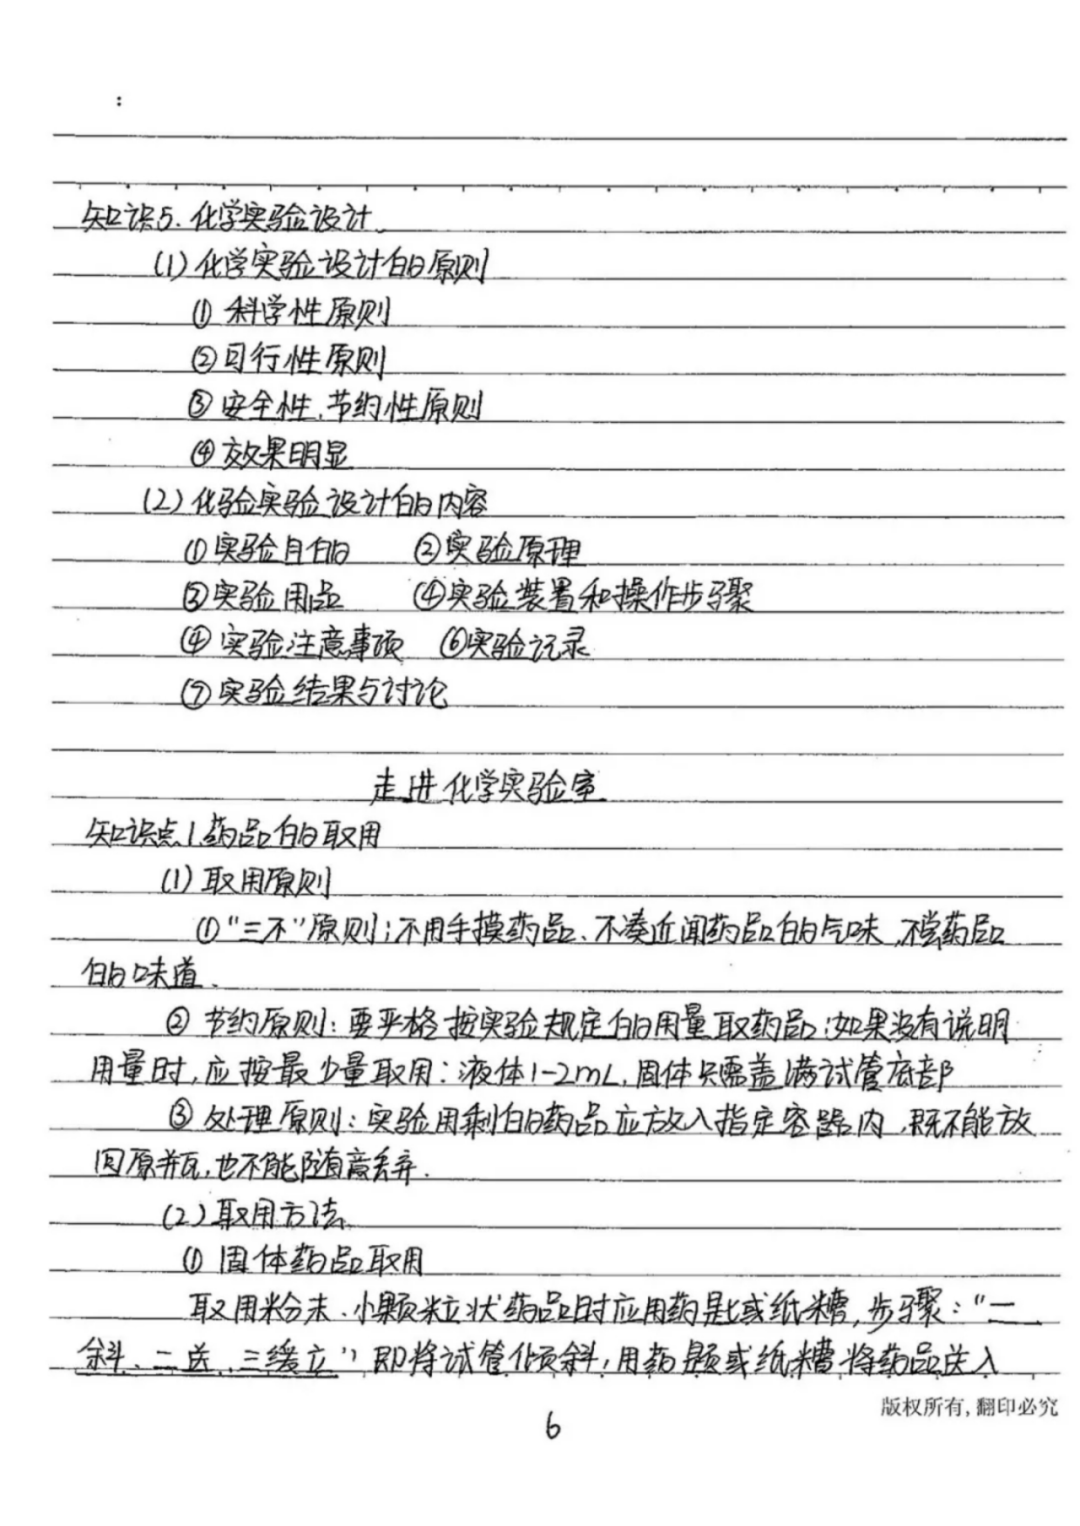 :
知识5.化学实验设计.
(1)化学实验设计的原则
① 科学性原则
②可行性原则
③ 安全性.节约性原则
④ 效果明显
(2)化验实验设计的内容
①实验目的 ②实验原理
③实验用品 ④实验装置和操作步骤
④ 实验注意事项 ⑥实验记录
⑦ 实验结果与讨论
走进化学实验室
知识点1.药品的取用
(1)取用原则
①“三不”原则;不用手摸药品、不凑近闻药品的气味,不尝药品
的味道.
② 节约原则:要严格按实验规定的用量取药品;如果没有说明
用量时,应按最少量取用:液体1-2mL,固体只需盖满试管底部
③ 处理原则:实验用剩的药品应放入指定容器内,既不能放
回原瓶,也不能随意丢弃.
(2)取用方法
① 固体药品取用
取用粉末、小颗粒状药品时应用药匙或纸槽,步骤:“一
斜、二送、三缓立”)即将试管倾斜,用药匙或纸槽将药品送入
版权所有,翻印必究
6